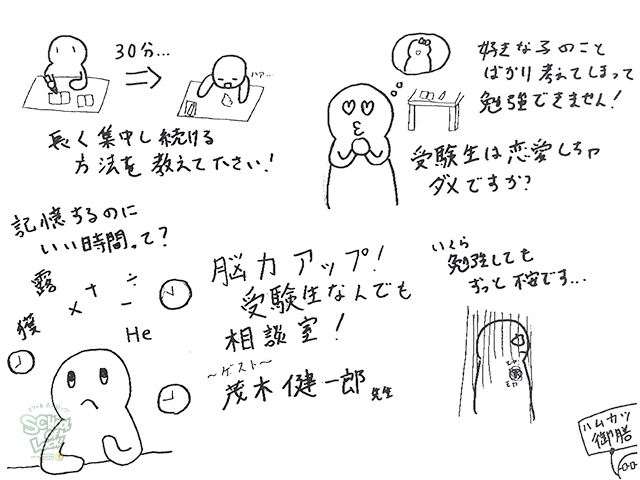 30分...
ハァ...
長く集中し続ける
方法を教えて下さい！
好きな子のこと
ばかり考えてしまって
勉強できません！
受験生は恋愛しちゃ
ダメですか？
記憶するのに
いい時間って？
露
獲
+
÷
×
−
He
脳力アップ！
受験生なんでも
相談室！
〜ゲスト〜
茂木健一郎 先生
いくら
勉強しても
ずっと不安です...
モヤ
モヤ
ハムカツ
御膳
SCHOOL OF LOCK!